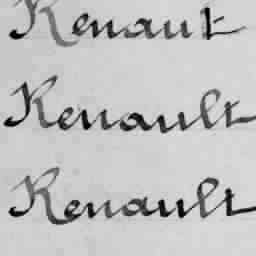 Renaut
Renault
Renault